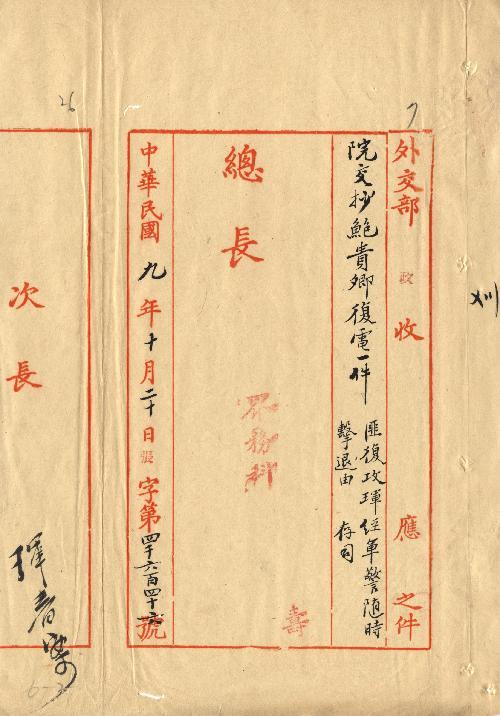 7
外交部 政 收 應 之件
院交抄鮑貴卿復電一件
匪復攻琿經軍警隨時
擊退由 存司
總長
壽
中華民國九年十月二十日 張字第四千六百四十號
26
次長
琿春案
6-2